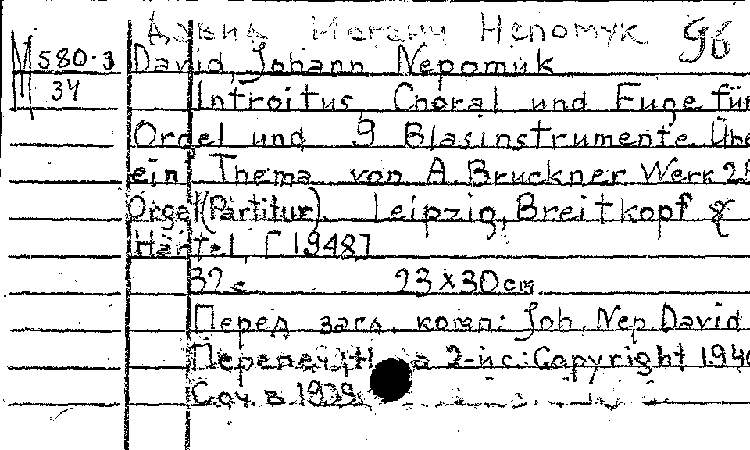 Давид Иоганн Непомук 96
М 580-3 David, Johann Nepomuk
34 Introitus, Choral und Fuge für
Orgel und 9 Blasinstrumente Übe
ein Thema von A. Bruckner Werk 25
Orgel (Partitur). Leipzig, Breitkopf &
Härtel, [1948]
32 с 23x30 cm
Перед загл. комп: Joh. Nep. David
2-й с: Copyright 194
Соч. в 1939